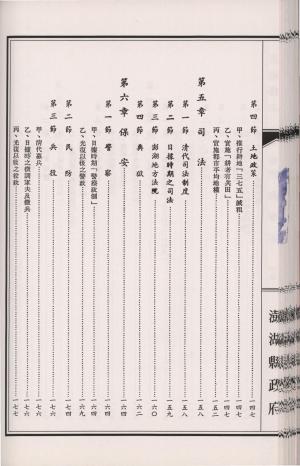 第四節 土地政策 一四七
甲、推行耕地「三七五」減租 一四七
乙、實施「耕者有其田」 一四七
丙、實施都市平均地權 一五二
第五章 司法 一五八
第一節 清代司法制度 一五八
第二節 日據時期之司法 一五九
第三節 澎湖地方法院 一六〇
第四節 典獄 一六二
第六章 保安 一六四
第一節 警察 一六四
甲、日據時期「警務政制」 一六四
乙、光復以後之警政 一六四
第二節 民防 一七四
第三節 兵役 一七六
甲、清代募兵 一七六
乙、日據時之徵調軍夫及徵兵 一七六
丙、光復以後之役政 一七七
澎湖縣政府